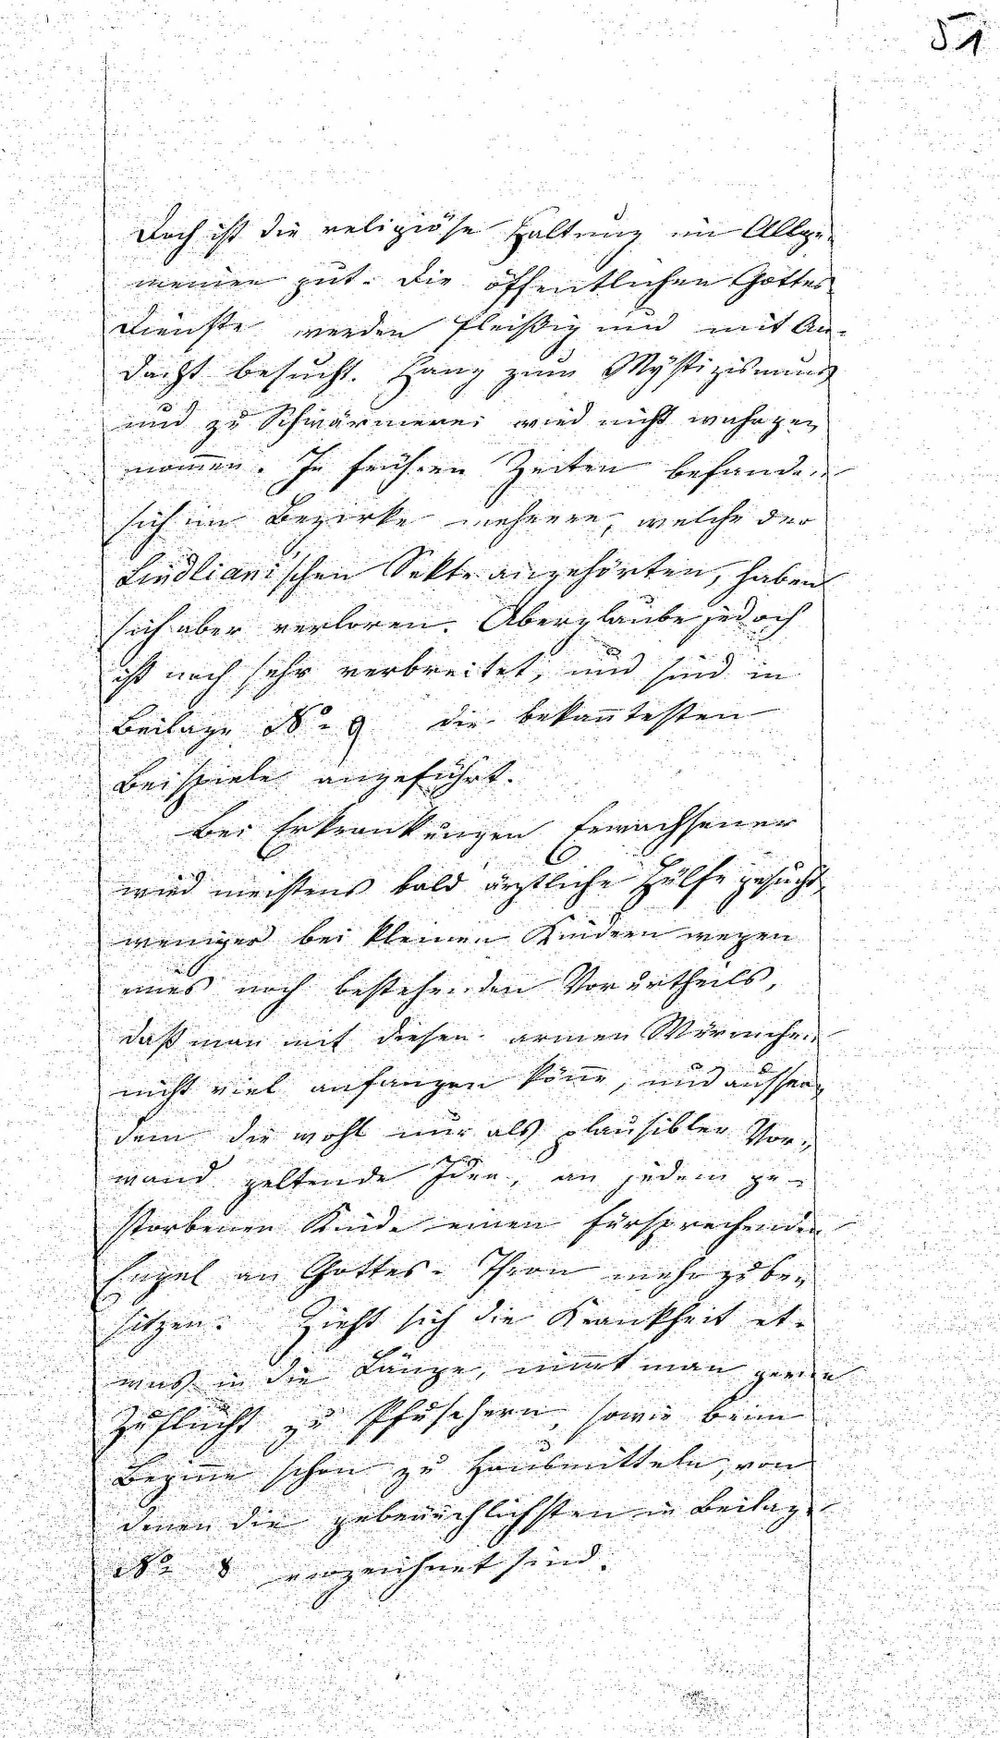 51
Doch ist die religiöse Haltung im Allge-
meinen gut. Die öffentlichen Gottes
dienste werden fleißig und mit An-
dacht besucht. Hang zum Mÿstizismus
und zu Schwärmerei wird nicht wahrge-
nom̄en. In frühern Zeiten befanden
sich im Bezirke mehrere, welche der
Lindliani'schen Sekte angehörten, haben
sich aber verloren. Aberglaube jedoch
ist noch sehr verbreitet, und sind in
Beilage No. 9 die bekan̄testen
Beispiele angeführt.
Bei Erkrankungen Erwachsener
wird meistens bald ärztliche Hülfe gesucht,
weniger bei kleinen Kindern wegen
eines noch bestehenden Vorurtheils,
daß man mit diesen armen Würmchen
nicht viel anfangen kön̄e, und ausser-
dem die wohl nur als plausibler Vor-
wand geltende Idee, an jedem ge-
storbenen Kinde einen fürsprechenden
Engel an Gottes-Thron mehr zu be-
sitzen. Zieht sich die Krankheit et-
was in die Länge, nim̄t man gerne
Zuflucht zu Pfuschern, sowie beim
Begin̄e schon zu Hausmitteln, von
denen die gebräuchlichsten in Beilage
No 8 verzeichnet sind.